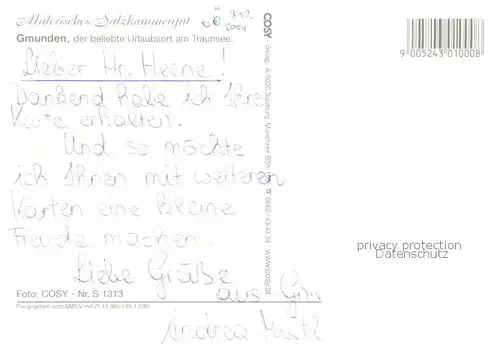 Malerisches Salzkammergut
Gmunden, der beliebte Urlaubsort am Traunsee.
Lieber Hr. Heene!
Dankend habe ich Ihre
Karte erhalten.
Und so möchte
ich Ihnen mit weiteren
Karten eine kleine
Freude machen.
Liebe Grüße
aus
Andrea
Foto: COSY - Nr. S 1313
Freigegeben vom BMfLV mit
COSY Verlag, A-5020 Salzburg, Münchner BSt
☎ 0662-43 42 34 www.cosy.at
9 005243 010008
privacy protection
Datenschutz